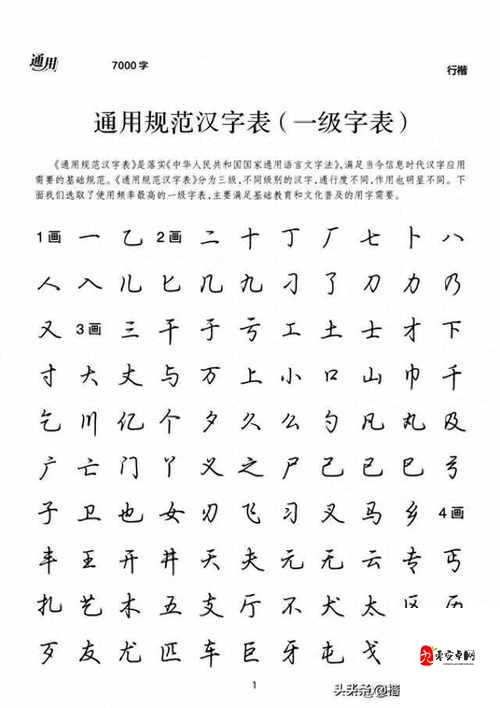 通用
7000 字
行楷
通用规范汉字表（一级字表）
《通用规范汉字表》是落实《中华人民共和国国家通用语言文字法》，满足当今信息时代汉字应用
需要的基础规范。《通用规范汉字表》分为三级，不同级别的汉字，通行度不同，作用也明显不同。下
面我们选取了使用频率最高的一级字表，主要满足基础教育和文化普及的用字需要。
1画 一 乙 2画 二 十 丁 厂 七 卜 八
人 入 儿 匕 几 九 刁 了 刀 力 乃
又 3画 三 干 于 亏 工 土 士 才 下
寸 大 丈 与 万 上 小 口 山 巾 千
乞 川 亿 个 夕 久 么 勺 凡 丸 及
广 亡 门 丫 义 之 尸 己 已 巳 弓
子 卫 也 女 刃 飞 习 叉 马 乡 4画
丰 王 开 井 天 夫 元 无 云 专 丐
扎 艺 木 五 支 厅 不 犬 太
歹 友 尤 匹 车 巨 牙 屯 戈
零安卓网
1
头条 @楷